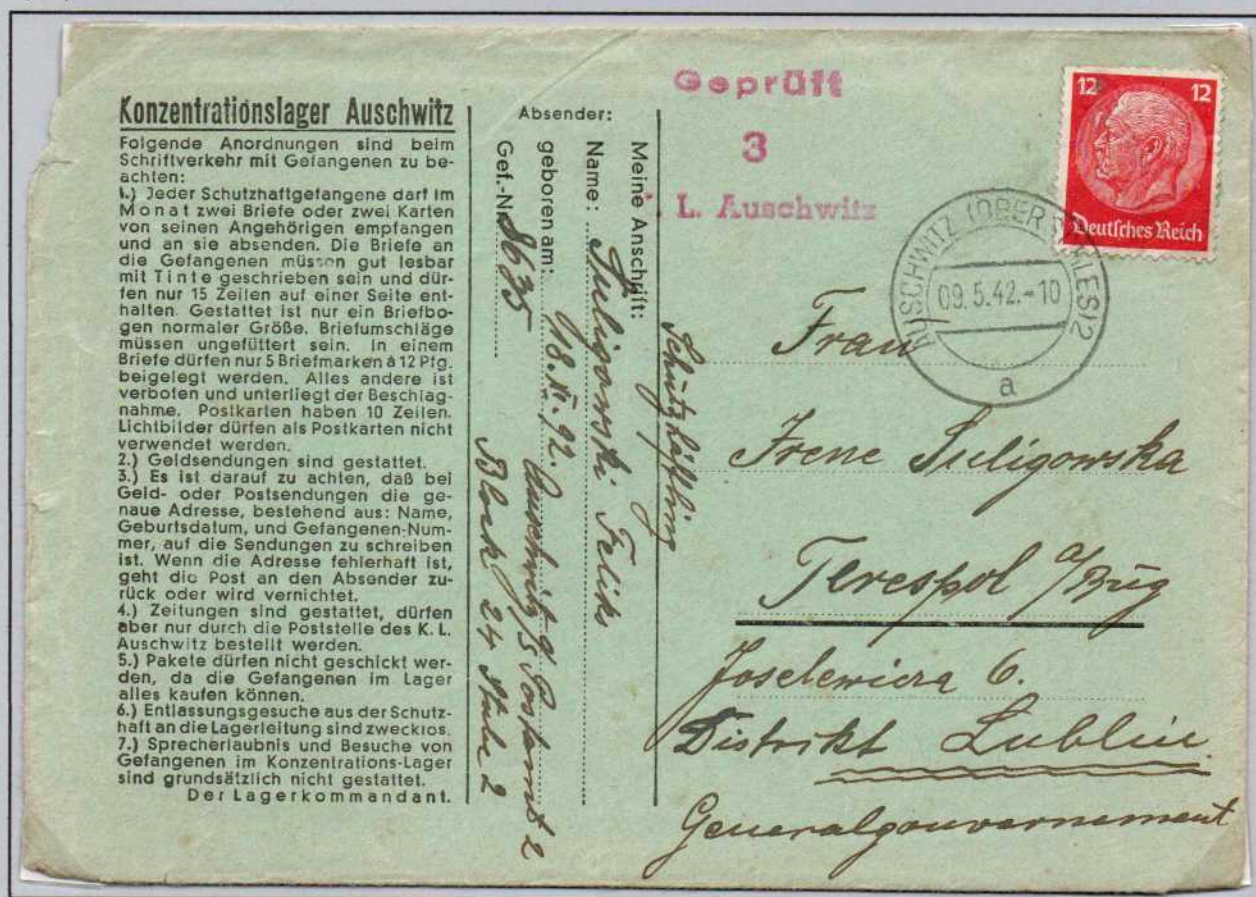 Konzentrationslager Auschwitz
Folgende Anordnungen sind beim
Schriftverkehr mit Gefangenen zu be-
achten:
1.) Jeder Schutzhaftgefangene darf im
Monat zwei Briefe oder zwei Karten
von seinen Angehörigen empfangen
und an sie absenden. Die Briefe an
die Gefangenen müssen gut lesbar
mit Tinte geschrieben sein und dür-
fen nur 15 Zeilen auf einer Seite ent-
halten. Gestattet ist nur ein Briefbo-
gen normaler Größe. Briefumschläge
müssen ungefüttert sein. In einem
Briefe dürfen nur 5 Briefmarken à 12 Pfg.
beigelegt werden. Alles andere ist
verboten und unterliegt der Beschlag-
nahme. Postkarten haben 10 Zeilen.
Lichtbilder dürfen als Postkarten nicht
verwendet werden.
2.) Geldsendungen sind gestattet.
3.) Es ist darauf zu achten, daß bei
Geld- oder Postsendungen die ge-
naue Adresse, bestehend aus: Name,
Geburtsdatum, und Gefangenen-Num-
mer, auf die Sendungen zu schreiben
ist. Wenn die Adresse fehlerhaft ist,
geht die Post an den Absender zu-
rück oder wird vernichtet.
4.) Zeitungen sind gestattet, dürfen
aber nur durch die Poststelle des K. L.
Auschwitz bestellt werden.
5.) Pakete dürfen nicht geschickt wer-
den, da die Gefangenen im Lager
alles kaufen können.
6.) Entlassungsgesuche aus der Schutz-
haft an die Lagerleitung sind zwecklos.
7.) Sprecherlaubnis und Besuche von
Gefangenen im Konzentrations-Lager
sind grundsätzlich nicht gestattet.
Der Lagerkommandant.
Absender:
Meine Anschrift:
Schutzhäftling
Name: Suligowski Feliks
geboren am: 18.XI.92. Auschwitz Postamt 2
Gef.-Nr. 8635 Block 24 Stube 2
Geprüft
3
L. Auschwitz
12 12
Deutsches Reich
AUSCHWITZ (OBERSCHLES) 2
09.5.42.-10
a
Frau
Irene Suligowska
Terespol a/Bug
Joselewicza 6.
Distrikt Lublin
Generalgouvernement